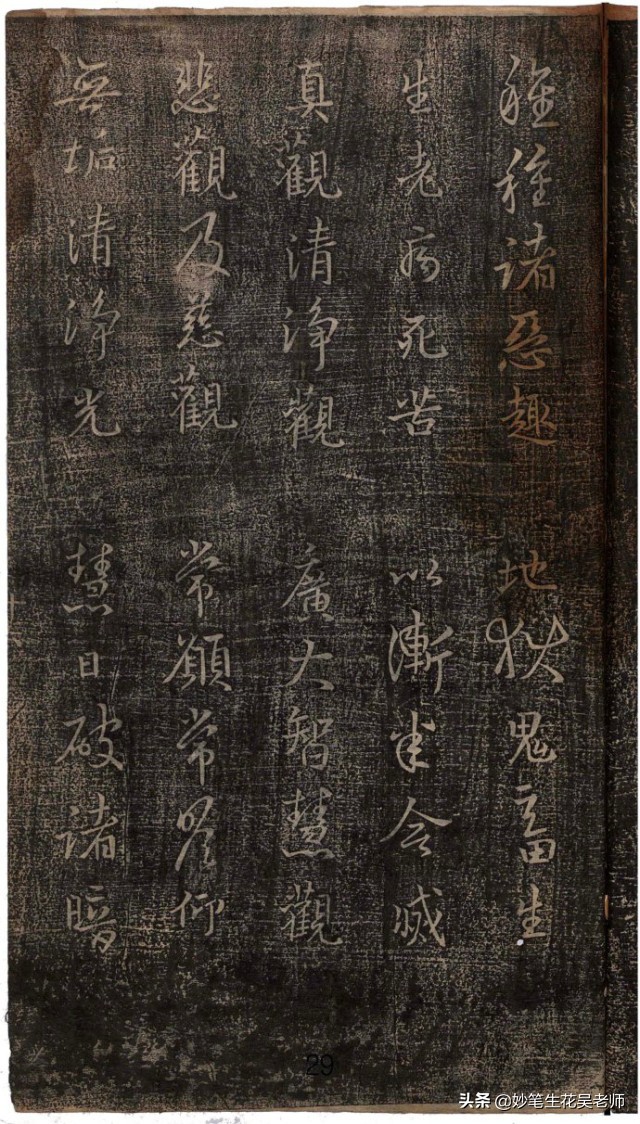 種種諸惡趣 地獄鬼畜生
生老病死苦 以漸悉令滅
真觀清淨觀 廣大智慧觀
悲觀及慈觀 常願常瞻仰
無垢清淨光 慧日破諸暗
29
头条 @妙笔生花吴老师